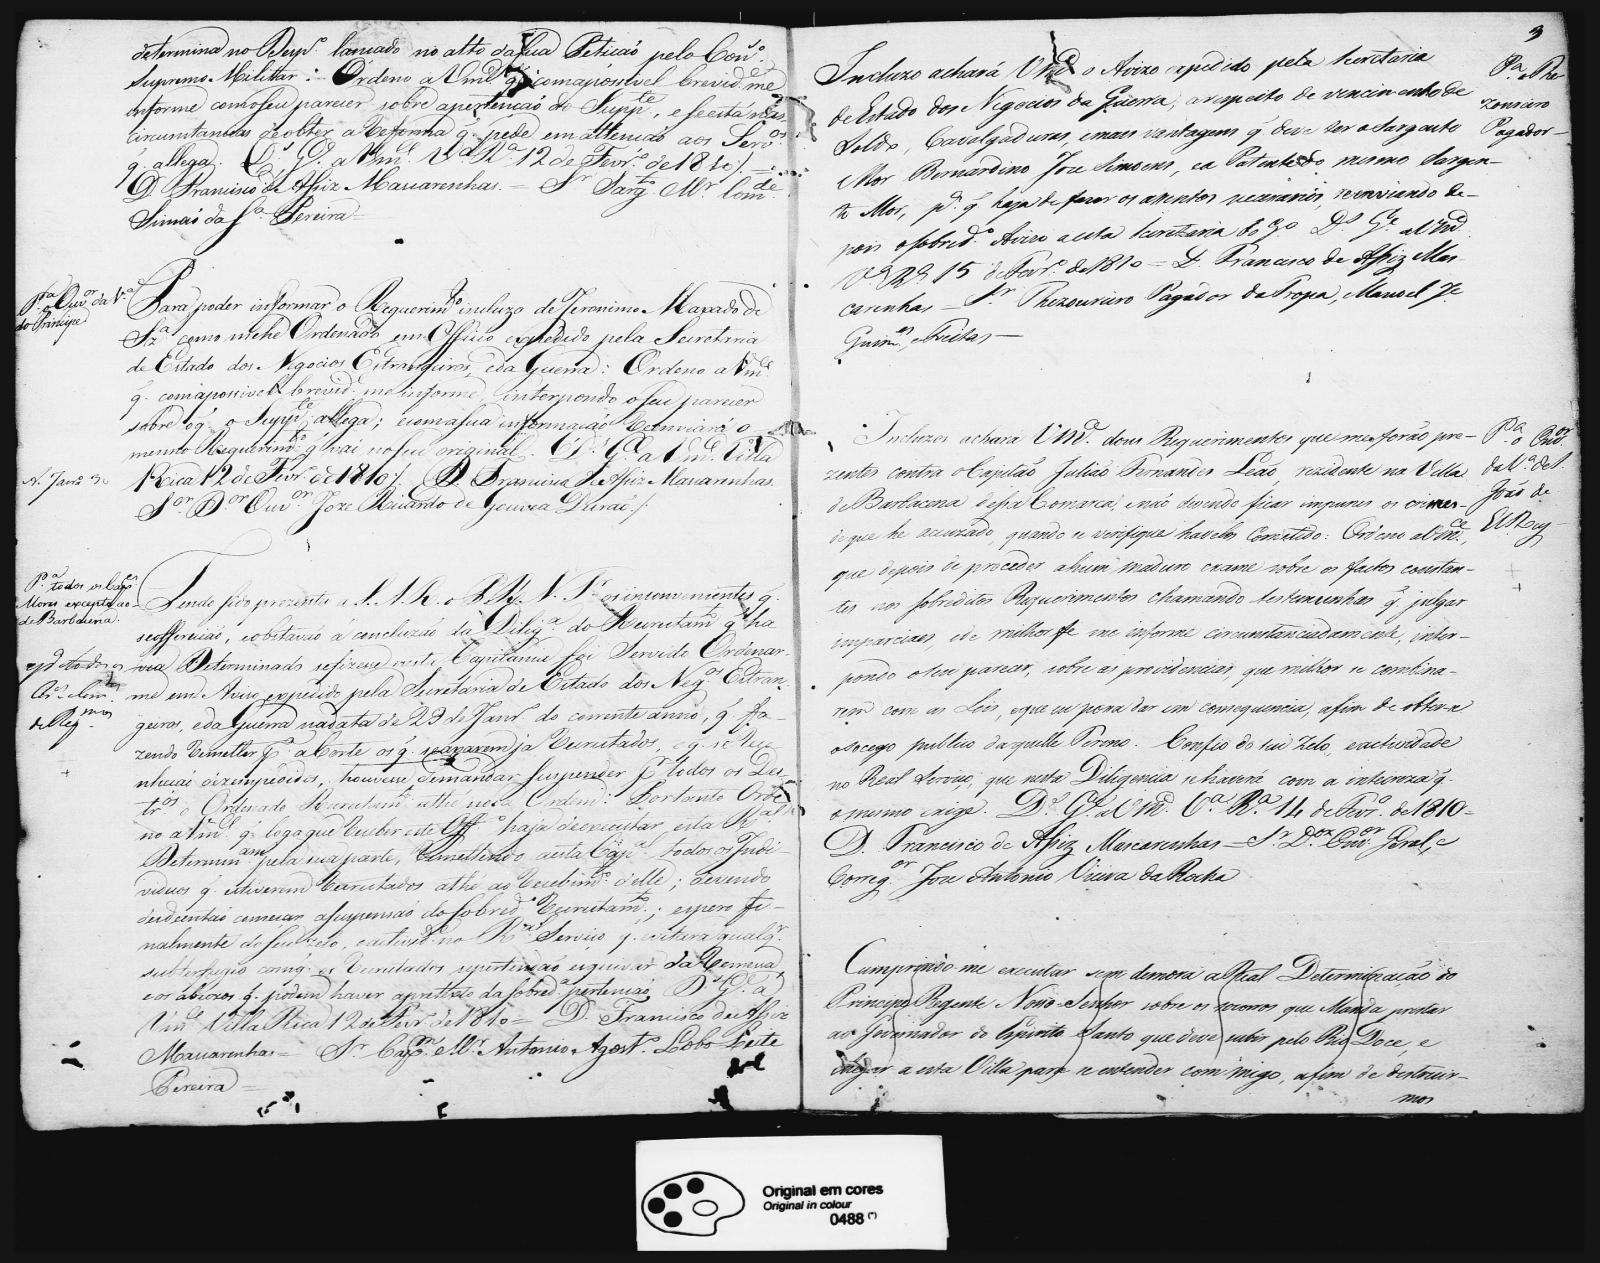 determina no Desp.o lançado no alto da sua Petiçaõ pelo Con.o
Supremo Militar: Ordeno a Vm.ce q' com a possivel brevid.e me
informe com o seu parecer sobre a pertençaõ do Supp.te, e se está nas
circunstancias de obter a Reforma q' pede em attençaõ aos Serv.os
q' allega. D.s G.e a Vm.ce V.a R.a 12 de Fevr.o de 1810 /. =
D. Francisco de Assiz Mascarenhas. = S.r Sarg.to M.r Com.de
Simaõ da S.a Pereira =
P.a o Ouv.or da V.a
do Principe
Para poder informar o Requerim.to incluzo de Jeronimo Maxado de
Sz.a como me he Ordenado em Officio expedido pela Secretaria
de Estado dos Negocios Estrangeiros, e da Guerra: Ordeno a Vm.ce
q' com a possivel brevid.e me informe, interpondo o seu parecer
sobre o q' o Supp.te allega; e com a sua informaçaõ Reenviará o
mesmo Requerim.to q' vai no seu original. D.s G.e a Vm.ce Villa
Rica 12 de Fevr.o de 1810 /. D. Francisco de Assiz Mascarenhas.
S.or D.or Ouv.or Joze Ricardo de Gouvea Duraõ /.
P.a todos os Cap.es
Mores excepto ao
de Barbacena.
Tendo sido prezente a S. A. R. o P. R. N. S.r os inconvenientes q'
se offereciaõ, e obstavaõ á concluzaõ da Dilig.a do Recrutam.to q' ha
via Determinado se fizesse nesta Capitania foi Servido Ordenar
me em Avizo expedido pela Secretaria de Estado dos Neg.os Estran
geiros, e da Guerra na data de 23 de Janr.o do corrente anno, q' fa
zendo Remetter p.a a Corte os q' se axarem já Recrutados, e q' se
nhaõ, houvesse de mandar suspender p.r todos os Des
tr.os o Ordenado Recrutam.to athé nova Ordem: Portanto Orde
no a Vm.ce q' logo que Receber este Off.o haja de executar esta R.al
Determin.am pela sua parte, Remettendo a esta Cap.al todos os Indi
viduos q' estiverem Recrutados athé ao Recebim.to d'elle; devendo
desde entaõ começar a suspensaõ do sobred.o Recrutam.to; espero fi
nalmente do seu zelo, e activid.e no R.al Serviço q' evitará qualq.r
subterfugio com q' os Recrutados se pertendaõ esquivar da Remessa
e os abuzos q' podem haver a pretexto da sobred.a pertençaõ, D.s G.e a
Vm.ce Villa Rica 12 de Fevr.o de 1810 = D. Francisco de Assiz
Mascarenhas = S.r Cap.m M.r Antonio Agost.o Lobo Leite
Pereira =
3
Incluzo achará Vm.ce o Avizo expedido pela Secretaria
de Estado dos Negocios da Guerra, a respeito do vencimento de
Soldo, Cavalgaduras, e mais ventagens q' deve ter o Sargento
Mor Bernardino Joze Simoens, e a Patente do mesmo Sargen-
to Mor, p.a q' haja de fazer os assentos necessarios, reenviando de-
pois o sobred.o Avizo a esta Secretaria do G.o D.s G.e a Vm.ce
V.a R.a 15 de Fevr.o de 1810 = D. Francisco de Assiz Mas
carenhas = S.r Thezoureiro Pagador da Tropa, Manoel J.e
Guim.es, e Freitas =
P.a o The
zoureiro
Pagador =
Incluzos achará Vm.ce dous Requerimentos que me foraõ pre-
zentes contra o Capitaõ Juliaõ Fernandes Leaõ, rezidente na Villa
de Barbacena dessa Comarca, e naõ devendo ficar impunes os crimes
de que he accuzado, quando se verifique havelos Comettido: Ordeno a Vm.ce,
que depois de proceder a hum maduro exame sobre os factos constan-
tes nos sobreditos Requerimentos chamando testemunhas q' julgar
imparciaes, e de milhor fe me informe circumstanciadamente, inter-
pondo o seu parecer, sobre as providencias, que milhor se combina-
rem com as Leis, e que eu possa dar em consequencia, afim de obter-se
o socego publico daquelle Termo. Confio do seu Zelo, e actividade
no Real Serviço, que nesta Diligencia se haverá com a inteireza q'
o mesmo exige. D.s G.e a Vm.ce V.a R.a 14 de Fevr.o de 1810 =
D. Francisco de Assiz Mascarenhas = S.r D.or Ouv.or Geral, e
Correg.or Joze Antonio Vieira da Rocha
P.a o Ouv.or
da V.a de S.
Joaõ de
El Rey
Cumprindo-me executar sem demora a Real Determinaçaõ do
Principe Regente Nosso Senhor sobre os socorros que Manda prestar
ao Governador do Espirito Santo que deve subir pelo Rio Doce, e
chegar a esta Villa para se entender commigo, afim de destruir-
mos
Original em cores
Original in colour
0488 (*)